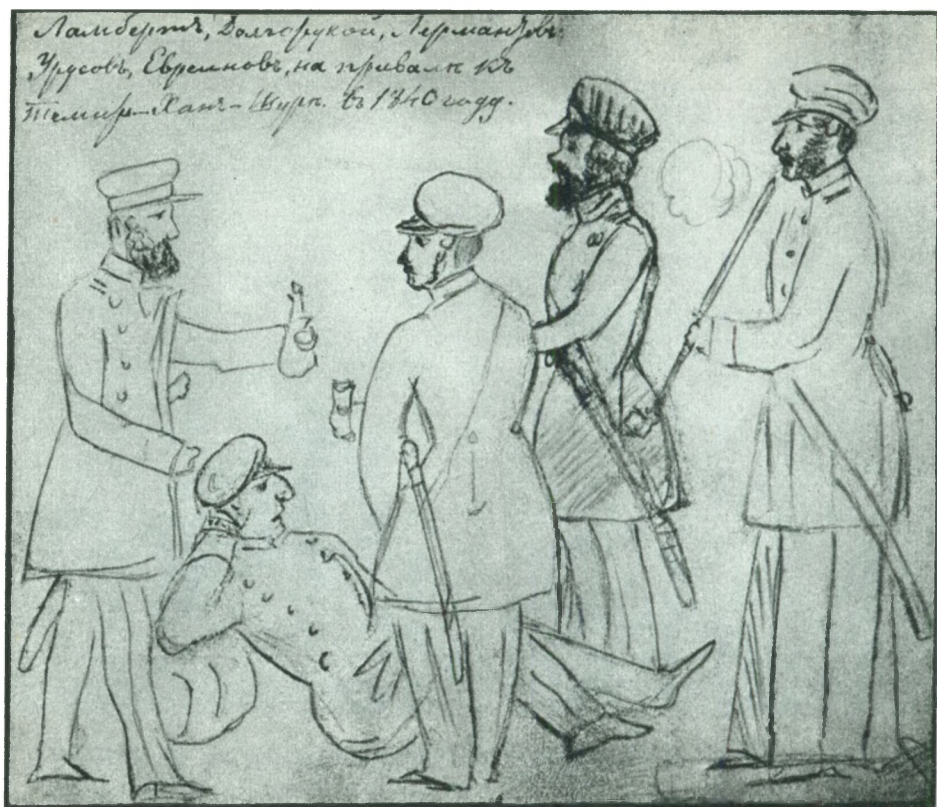 Ламбертъ, Долгорукой, Лермантовъ.
Урусовъ, Евреиновъ, на привалѣ къ
Темиръ-Ханъ-Шурѣ. въ 1840 году.